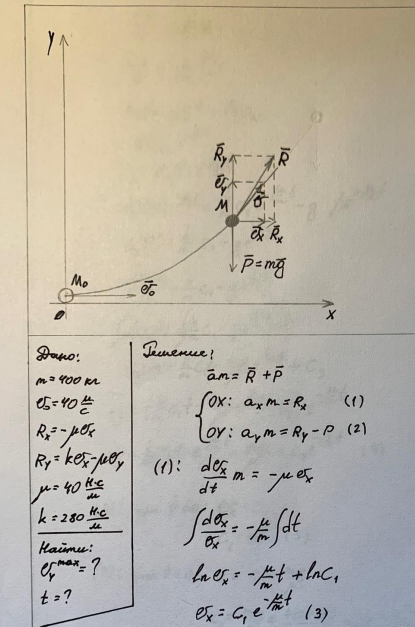 y
R̄y
R̄
σ̄y
M
σ̄
σ̄x
R̄x
P̄ = mḡ
M₀
σ̄₀
0
x
Дано:
m = 400 кг
σ₀ = 40 м/с
Rx = -μσx
Ry = kσx - μσy
μ = 40 Н·с/м
k = 280 Н·с/м
Найти:
σy^max = ?
t = ?
Решение:
ām = R̄ + P̄
{ OX: axm = Rx (1)
OY: aym = Ry - P (2)
(1): dσx/dt m = -μσx
∫ dσx/σx = -μ/m ∫ dt
ln σx = -μ/m t + ln C₁
σx = C₁ e^(-μ/m t) (3)